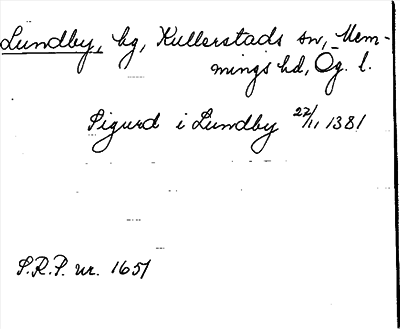 Lundby, by, Kullerstads sn, Mem-
mings hd, Ög. l.
Sigurd i Lundby 22/11 1381
S.R.P. nr. 1651